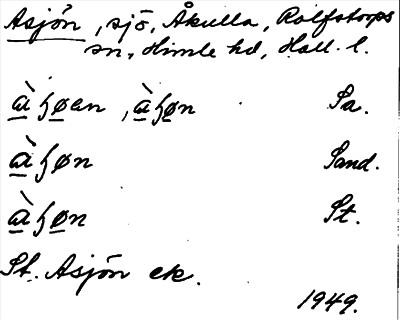 Asjön, sjö, Åkulla, Rolfstorps
sn, Himle hd, Hall. l.
àɧøen, àɧøn Sa.
àɧøn Sand.
àɧøn St.
St. Asjön ek.
1949.